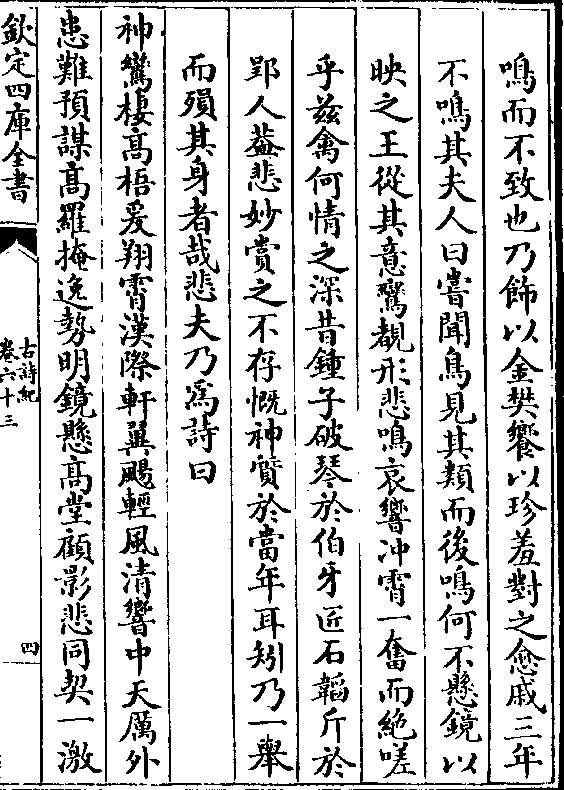 鳴而不致也乃飾以金樊饗以珍羞對之愈戚三年
不鳴其夫人曰嘗聞鳥見其類而後鳴何不懸鏡以
映之王從其意鸞覩形悲鳴哀響冲霄一奮而絶嗟
乎兹禽何情之深昔鍾子破琴於伯牙匠石韜斤於
郢人葢悲妙賞之不存慨神質於當年耳矧乃一舉
而殞其身者哉悲夫乃為詩曰
神鸞棲高梧爰翔霄漢際軒翼颺輕風清響中天厲外
患難預謀高羅掩逸勢明鏡懸高堂顧影悲同契一激
欽定四庫全書
古詩紀
卷六十三
四